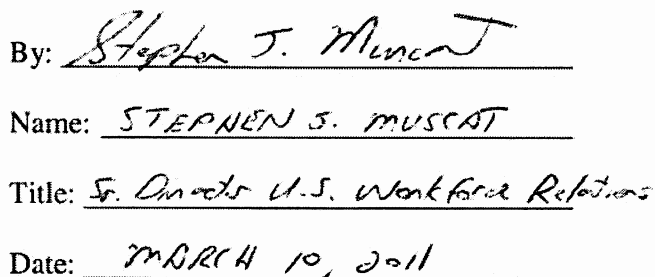 By: Stephen J. Muscat
Name: STEPHEN J. MUSCAT
Title: Sr. Director U.S. Workforce Relations
Date: MARCH 10, 2011